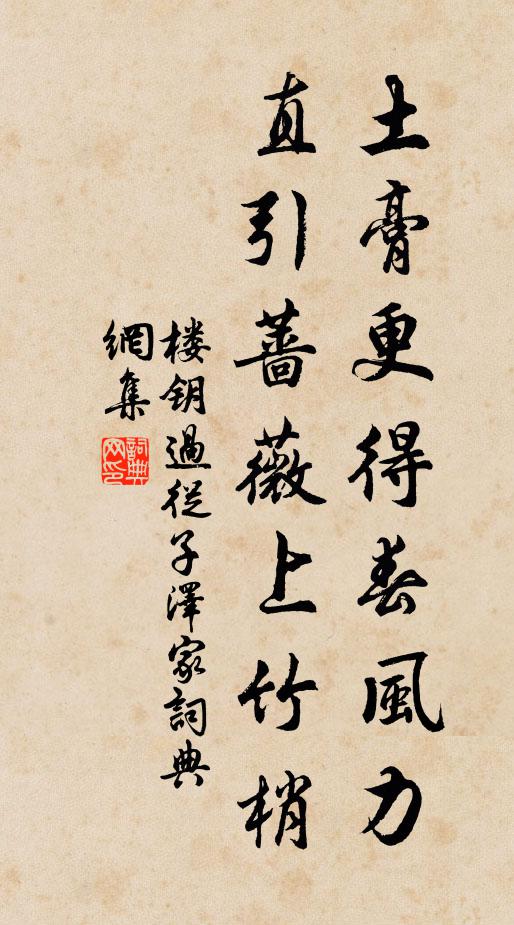 土膏更得春風力
直引薔薇上竹梢
楼钥過從子澤家詞典
網集
詞典網印